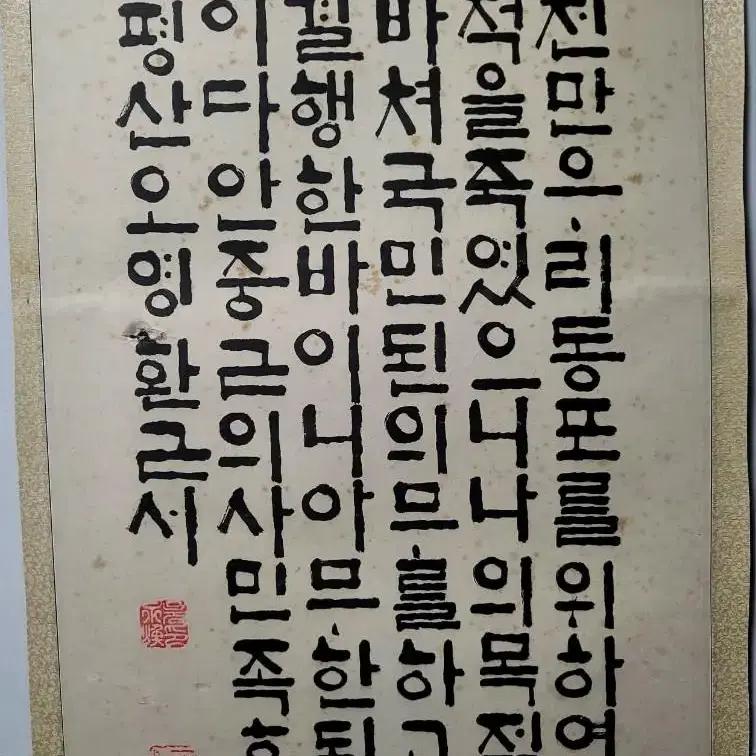 천만우리동포를위하여
적을죽였으니나의목적
바쳐국민된의무를하고
결행한바이니아무한된
이다안중근의사민족
평산오영환근서